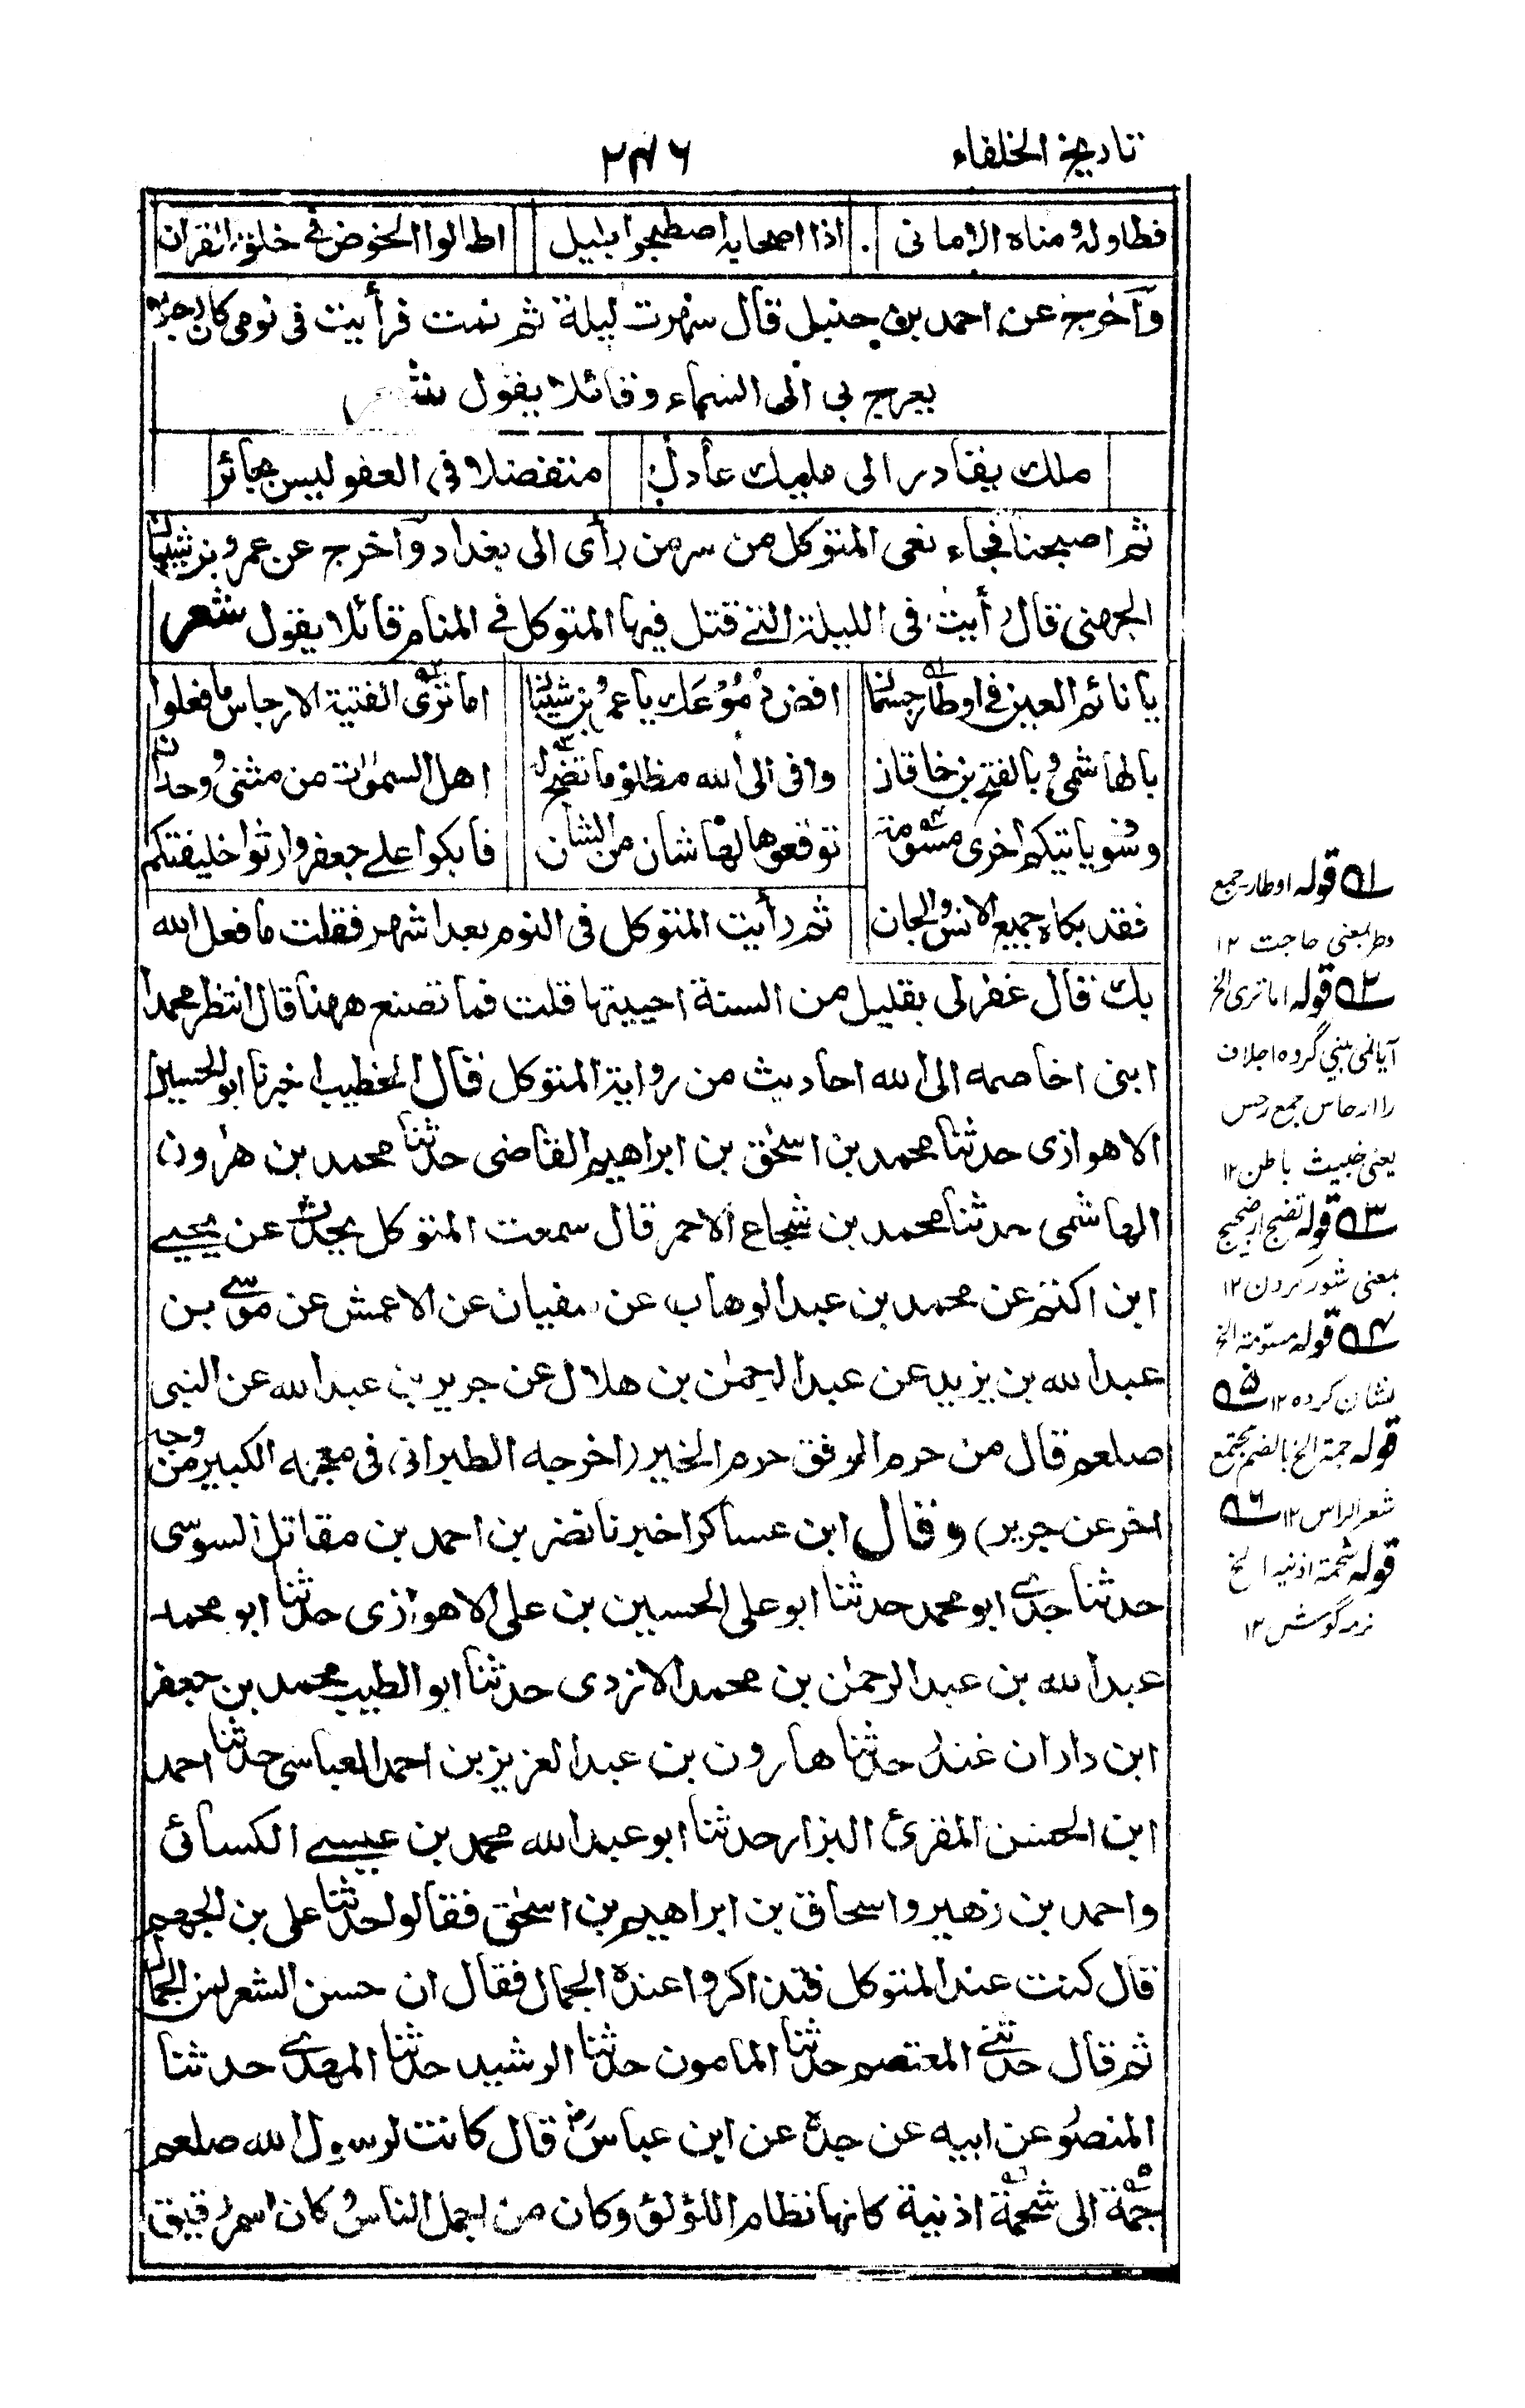 تاریخ الخلفاء ۲۴۶
فطاوله ومناه الامانی اذا اصحابه اصطبحوا بلیل اطالوا الخوض فی خلق القران
وآخرج عن احمد بن حنبل قال سهرت لیلة ثم نمت فرأیت فی نومی کان رجلا
یعرج بی الی السماء وقائلا یقول شعر
ملك یقادر الی ملیك عادل متفضلا فی العفو لیس بجائر
ثم اصبحنا فجاء نعی المتوکل من سر من رأی الی بغداد وآخرج عن عمرو بن شیبان
الجهنی قال رأیت فی اللیلة التی قتل فیها المتوکل فی المنام قائلا یقول شعر
یا نائم العین فی اوطار جسمان افض دموعك یا عمرو بن شیبان اما تری الفتیة الارجاس ما فعلوا
بالهاشمی وبالفتح بن خاقان وافی الی الله مظلوما تضج له اهل السموات من مثنی ووحدان
وسو یاتیکم اخری مسومة توقعوها لها شان من الشان فابکوا علی جعفر وارثوا خلیفتکم
فقد بکاه جمیع الانس والجان ثم رأیت المتوکل فی النوم بعد اشهر فقلت ما فعل الله
بك قال غفر لی بقلیل من السنة احییتها قلت فما تصنع ههنا قال انتظر محمدا
ابنی اخاصمه الی الله احادیث من روایة المتوکل قال الخطیب اخبرنا ابو الحسین
الاهوازی حدثنا محمد بن اسحٰق بن ابراهیم القاضی حدثنا محمد بن هٰرون
الهاشمی حدثنا محمد بن شجاع الاحمر قال سمعت المتوکل یحدث عن یحیی
ابن اکثم عن محمد بن عبد الوهاب عن سفیان عن الاعمش عن موسی بن
عبد الله بن یزید عن عبد الرحمٰن بن هلال عن جریر بن عبد الله عن النبی
صلعم قال من حرم الرفق حرم الخیر (اخرجه الطبرانی فی معجمه الکبیر من وجه
اخر عن جریر) وقال ابن عساکر اخبرنا نصر بن احمد بن مقاتل السوسی
حدثنا جدی ابو محمد حدثنا ابو علی الحسین بن علی الاهوازی حدثنا ابو محمد
عبد الله بن عبد الرحمٰن بن محمد الازدی حدثنا ابو الطیب محمد بن جعفر
ابن داران غندر حدثنا هارون بن عبد العزیز بن احمد العباسی حدثنا احمد
ابن الحسن المقرئ البزار حدثنا ابو عبد الله محمد بن عیسی الکسائی
واحمد بن زهیر واسحاق بن ابراهیم بن اسحٰق فقالوا حدثنا علی بن الجهم
قال کنت عند المتوکل فتذاکروا عنده الجمال فقال ان حسن الشعر لمن الجمال
ثم قال حدثنی المعتصم حدثنا المامون حدثنا الرشید حدثنا المهدی حدثنا
المنصور عن ابیه عن جده عن ابن عباس رض قال کانت لرسول الله صلعم
جمة الی شحمة اذنیه کانها نظام اللؤلؤ وکان من اجمل الناس وکان اسمر رقیق
۱ قوله اوطار جمع
وطر بمعنی حاجت ۱۲
۲ قوله اما تری الخ
آیا نمی بینی گروه اجلاف
را ارجاس جمع رجس
یعنی خبیث باطن ۱۲
۳ قوله تضج از ضجیج
بمعنی شور کردن ۱۲
۴ قوله مسومة الخ
نشان کرده ۱۲ ۵
قوله جمة الخ بالضم مجتمع
شعر الراس ۱۲ ۶
قوله شحمة اذنیه الخ
نرمه گوش ۱۲